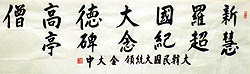 新羅國大德高僧
慧超紀念碑亭
大韓民國大統領 金大中